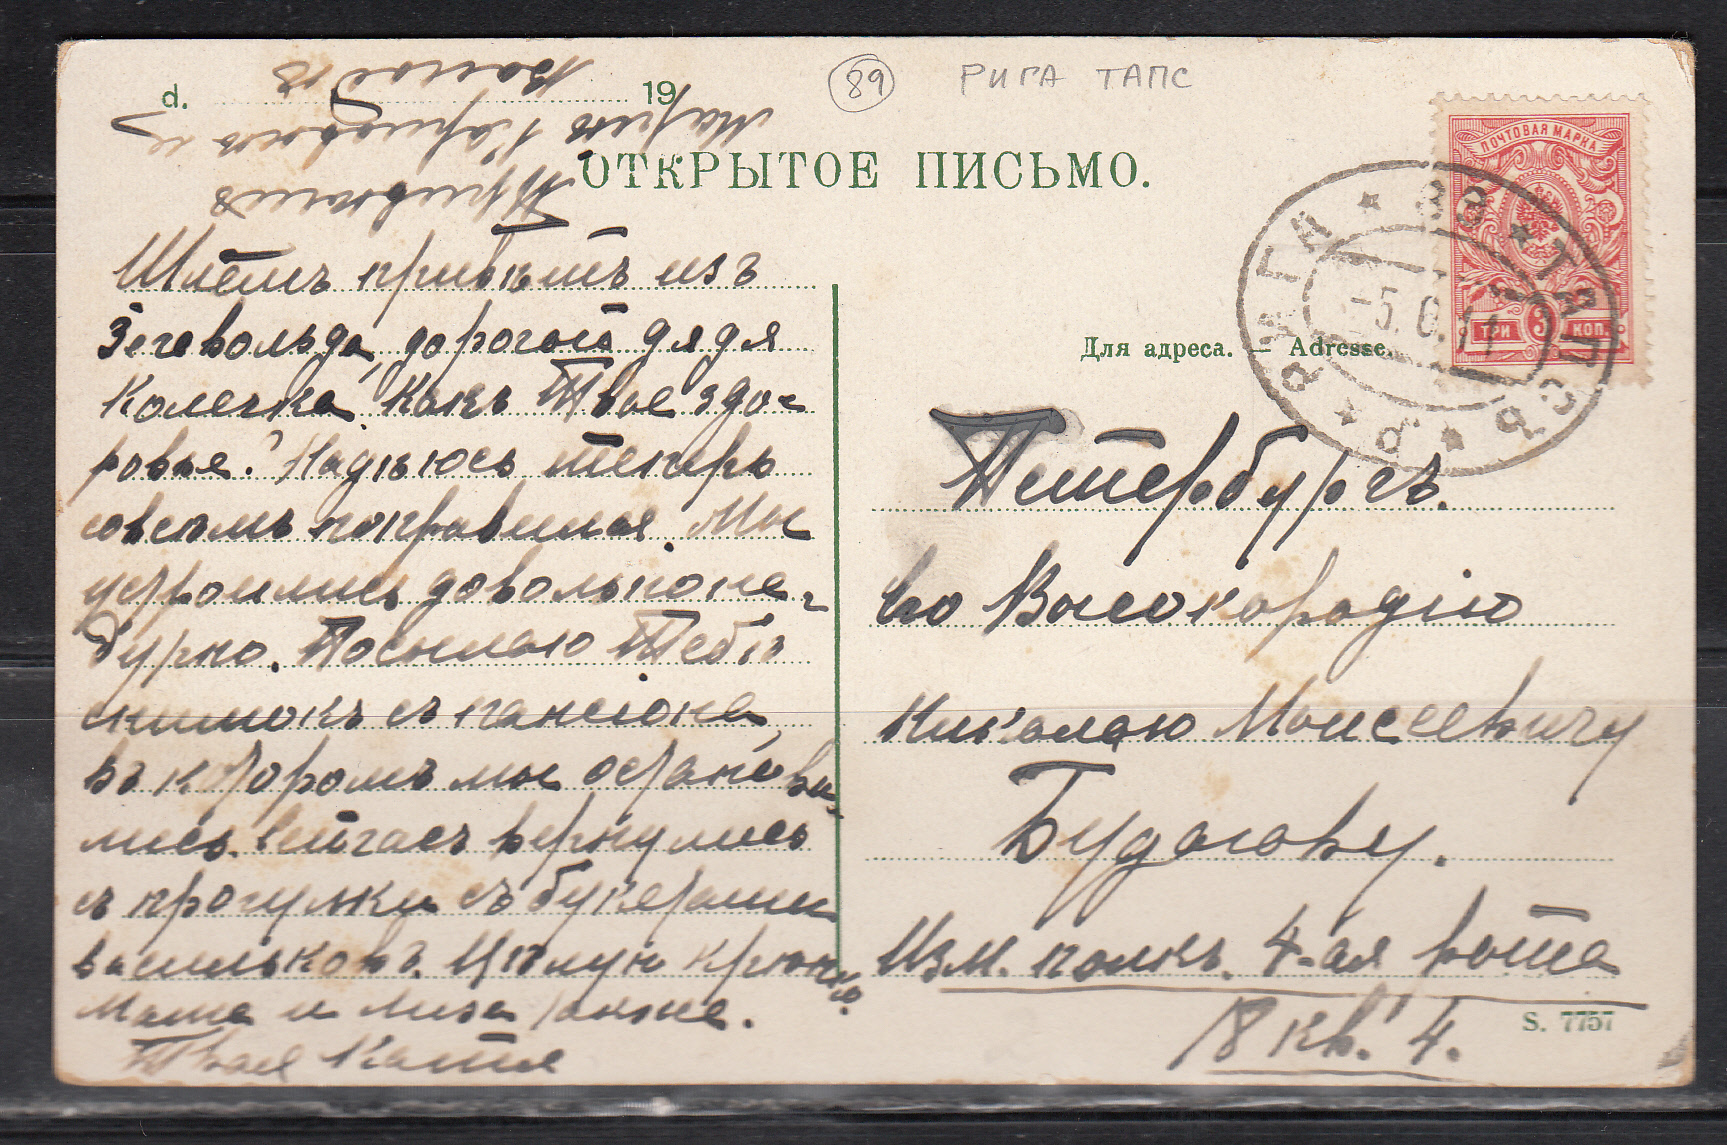 89 РИГА ТАПС
d. 19
ОТКРЫТОЕ ПИСЬМО.
ПОЧТОВАЯ МАРКА
ТРИ 3 КОП.
РИГА * 89 * ТАПСЪ * Р. Р. *
-5.6.11
Для адреса. — Adresse.
Шлемъ привѣтъ изъ
Зегевольда, дорогой дядя
Колечка. Какъ Твое здо-
ровье? Надѣюсь теперь
совсѣмъ поправился. Мы
устроились довольно не-
дурно. Посылаю Тебѣ
снимокъ съ пансіона,
въ которомъ мы останови-
лись. Сейчасъ вернулись
съ прогулки съ букетами
васильковъ. Цѣлую крѣпко.
Маша и Лиза также.
Твоя Катя
Привѣтъ
Петербургъ.
Его Высокородію
Николаю Моисеевичу
Будогову.
Изм. полкъ. 4-ая рота
18 кв. 4.
S. 7757